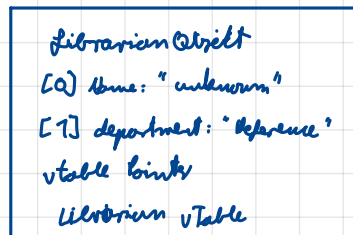 Librarian Objekt
[0] Name: "unknown"
[1] department: "Reference"
vtable Pointer
Librarian vTable